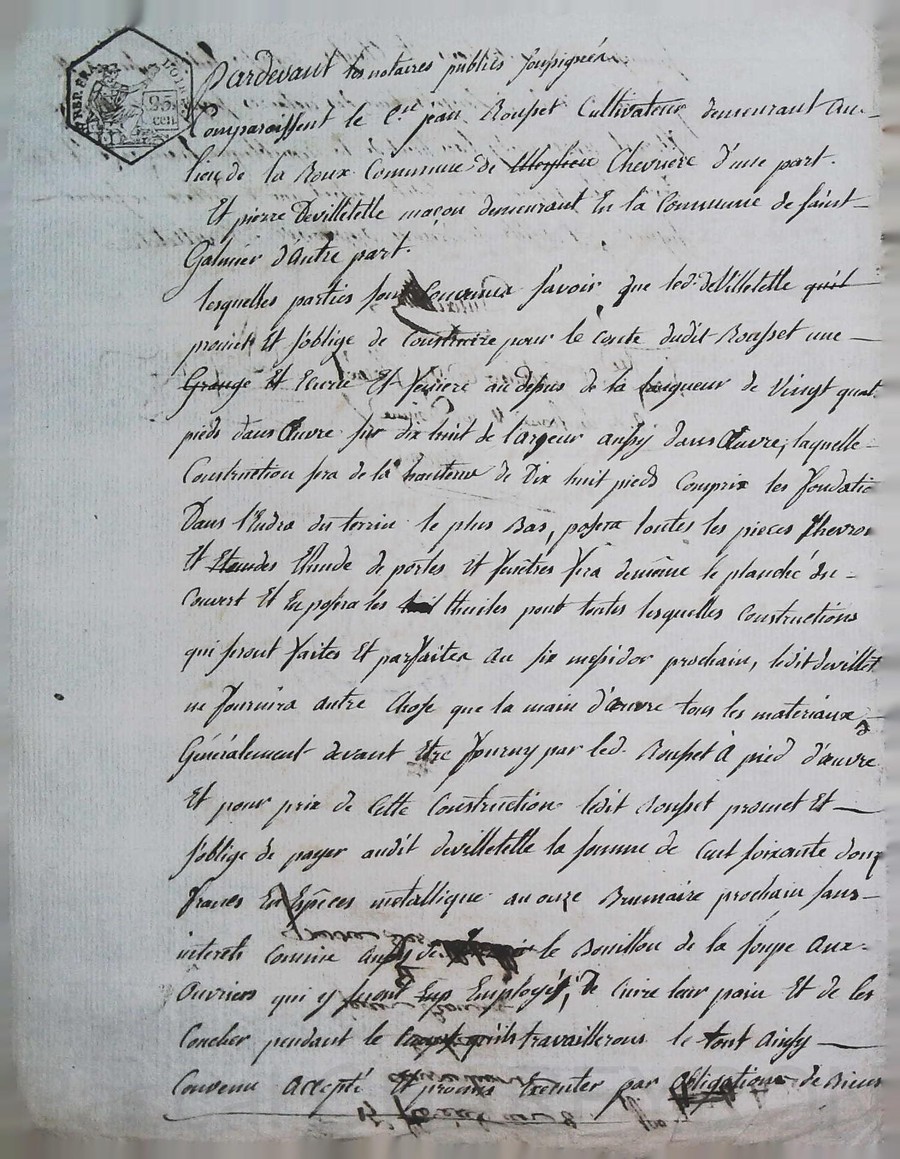 REP. FRA.
25
cen
Pardevant les notaires publics soussignées
Comparoissent le Cen jean Rousset Cultivateur demeurant au-
lieu de la Roux Commune de Chevriere d'une part.
Et pierre Devilletelle maçon demeurant En la Commune de saint-
Galmier d'autre part.
lesquelles parties sont Convenues savoir que led. deVilletelle qu'il
promet Et s'oblige de Construire pour le compte dudit Rousset une
Grange Et Ecurie Et feniere au depus de la longueur de Vingt quat
pieds dans Œuvre sur dix huit de largeur aussy dans Œuvre, laquelle
Construction sra de la hauteur de Dix huit pieds Compris les fondatio
Dans l'Endra du terrin le plus Bas, posera toutes les pieces Chevron
Et de portes Et fenêtres fera demême le planché du
Couvert Et En posera les thuiles pour toutes lesquelles Constructions
qui seront faites Et parfaites au six messidor prochain, ledit devillet
ne fournira autre Chose que la main d'œuvre tous les materiaux
Généralement devant Etre fourny par led. Rousset à pied d'œuvre
Et pour prix de Cette Construction ledit Rousset promet Et
s'oblige de payer audit devilletelle la somme de Cent soixante douz
francs En Espèces metallique au onze Brumaire prochain sans
interets Comme aussy de le Bouillon de la soupe aux
Ouvriers qui y seront Employés, de Cuire leur pain Et de les
Coucher pendant le qu'ils travaillerons le tout Ainsy
Convenu Accepté Et promis Executer par Obligations de Biens